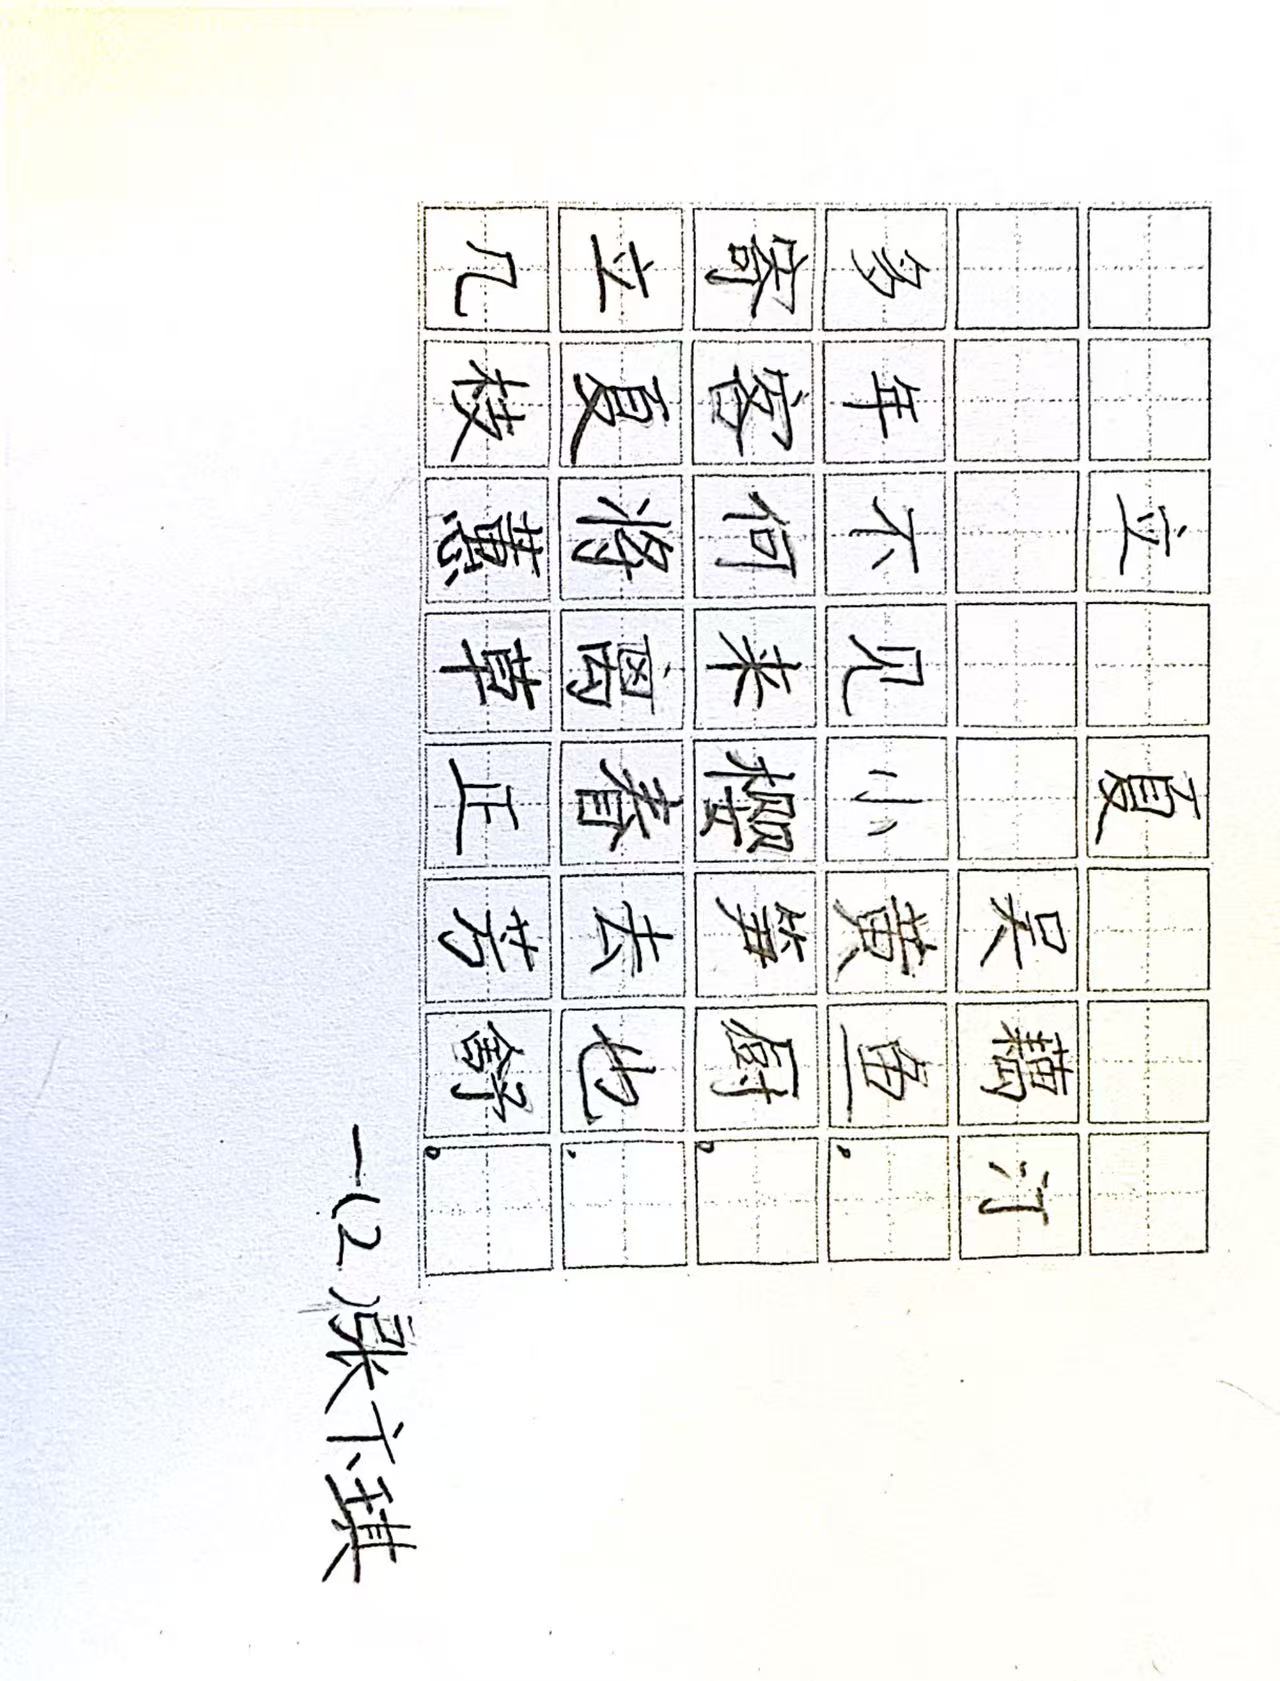 立夏
吴藕汀
多年不见小黄鱼，
寄客何来樱笋厨。
立夏将离春去也，
几枝蕙草正芳舒。
一(2)张卞琪